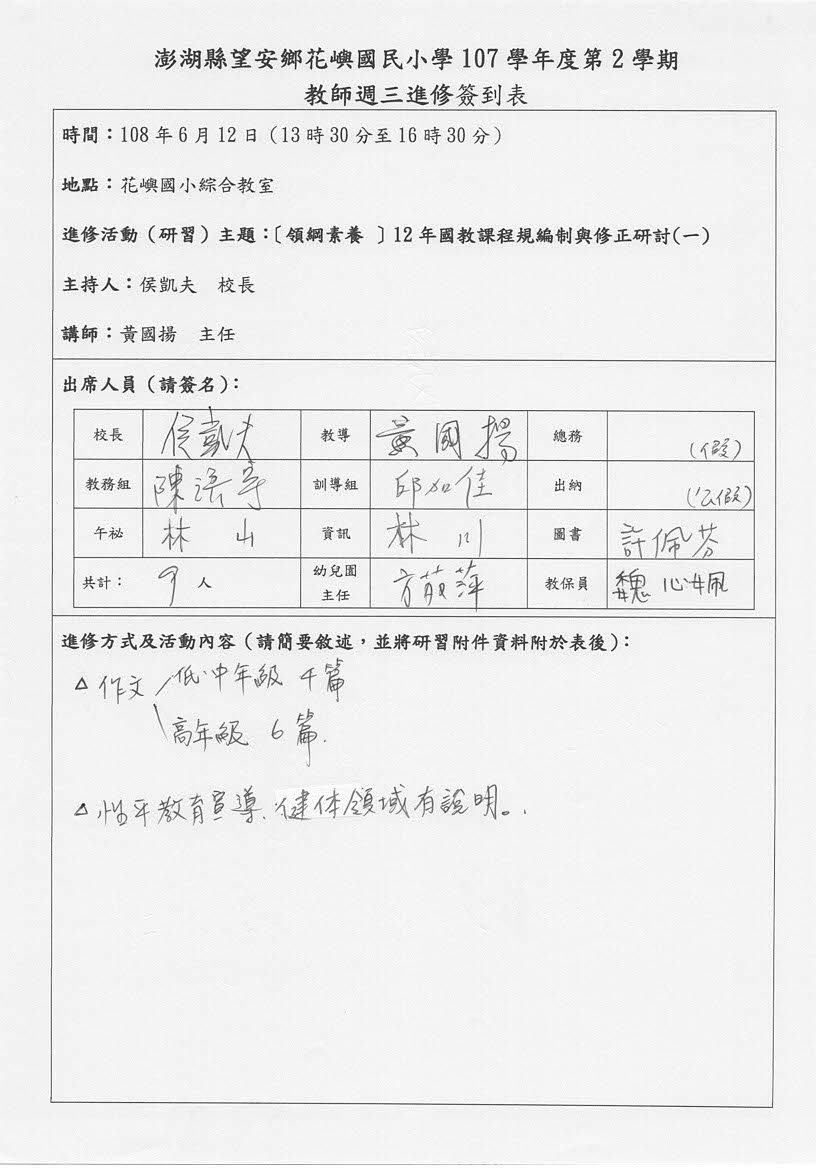 澎湖縣望安鄉花嶼國民小學107學年度第2學期
教師週三進修簽到表
時間：108年6月12日（13時30分至16時30分）
地點：花嶼國小綜合教室
進修活動（研習）主題：〔領綱素養 〕12年國教課程規編制與修正研討(一)
主持人：侯凱夫 校長
講師：黃國揚 主任
出席人員（請簽名）：
校長 侯凱夫 教導 黃國揚 總務 (假)
教務組 陳 訓導組 邱加佳 出納 (公假)
午祕 林山 資訊 林川 圖書 許佩芬
共計： 9 人 幼兒園主任 方萍 教保員 魏心姵
進修方式及活動內容（請簡要敘述，並將研習附件資料附於表後）：
△作文 低.中年級 4篇
高年級 6篇.
△性平教育宣導.健体領域有說明。